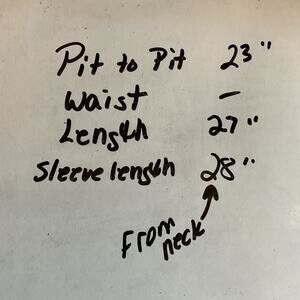 Pit to Pit 23"
Waist –
Length 27"
Sleeve length 28"
From
neck